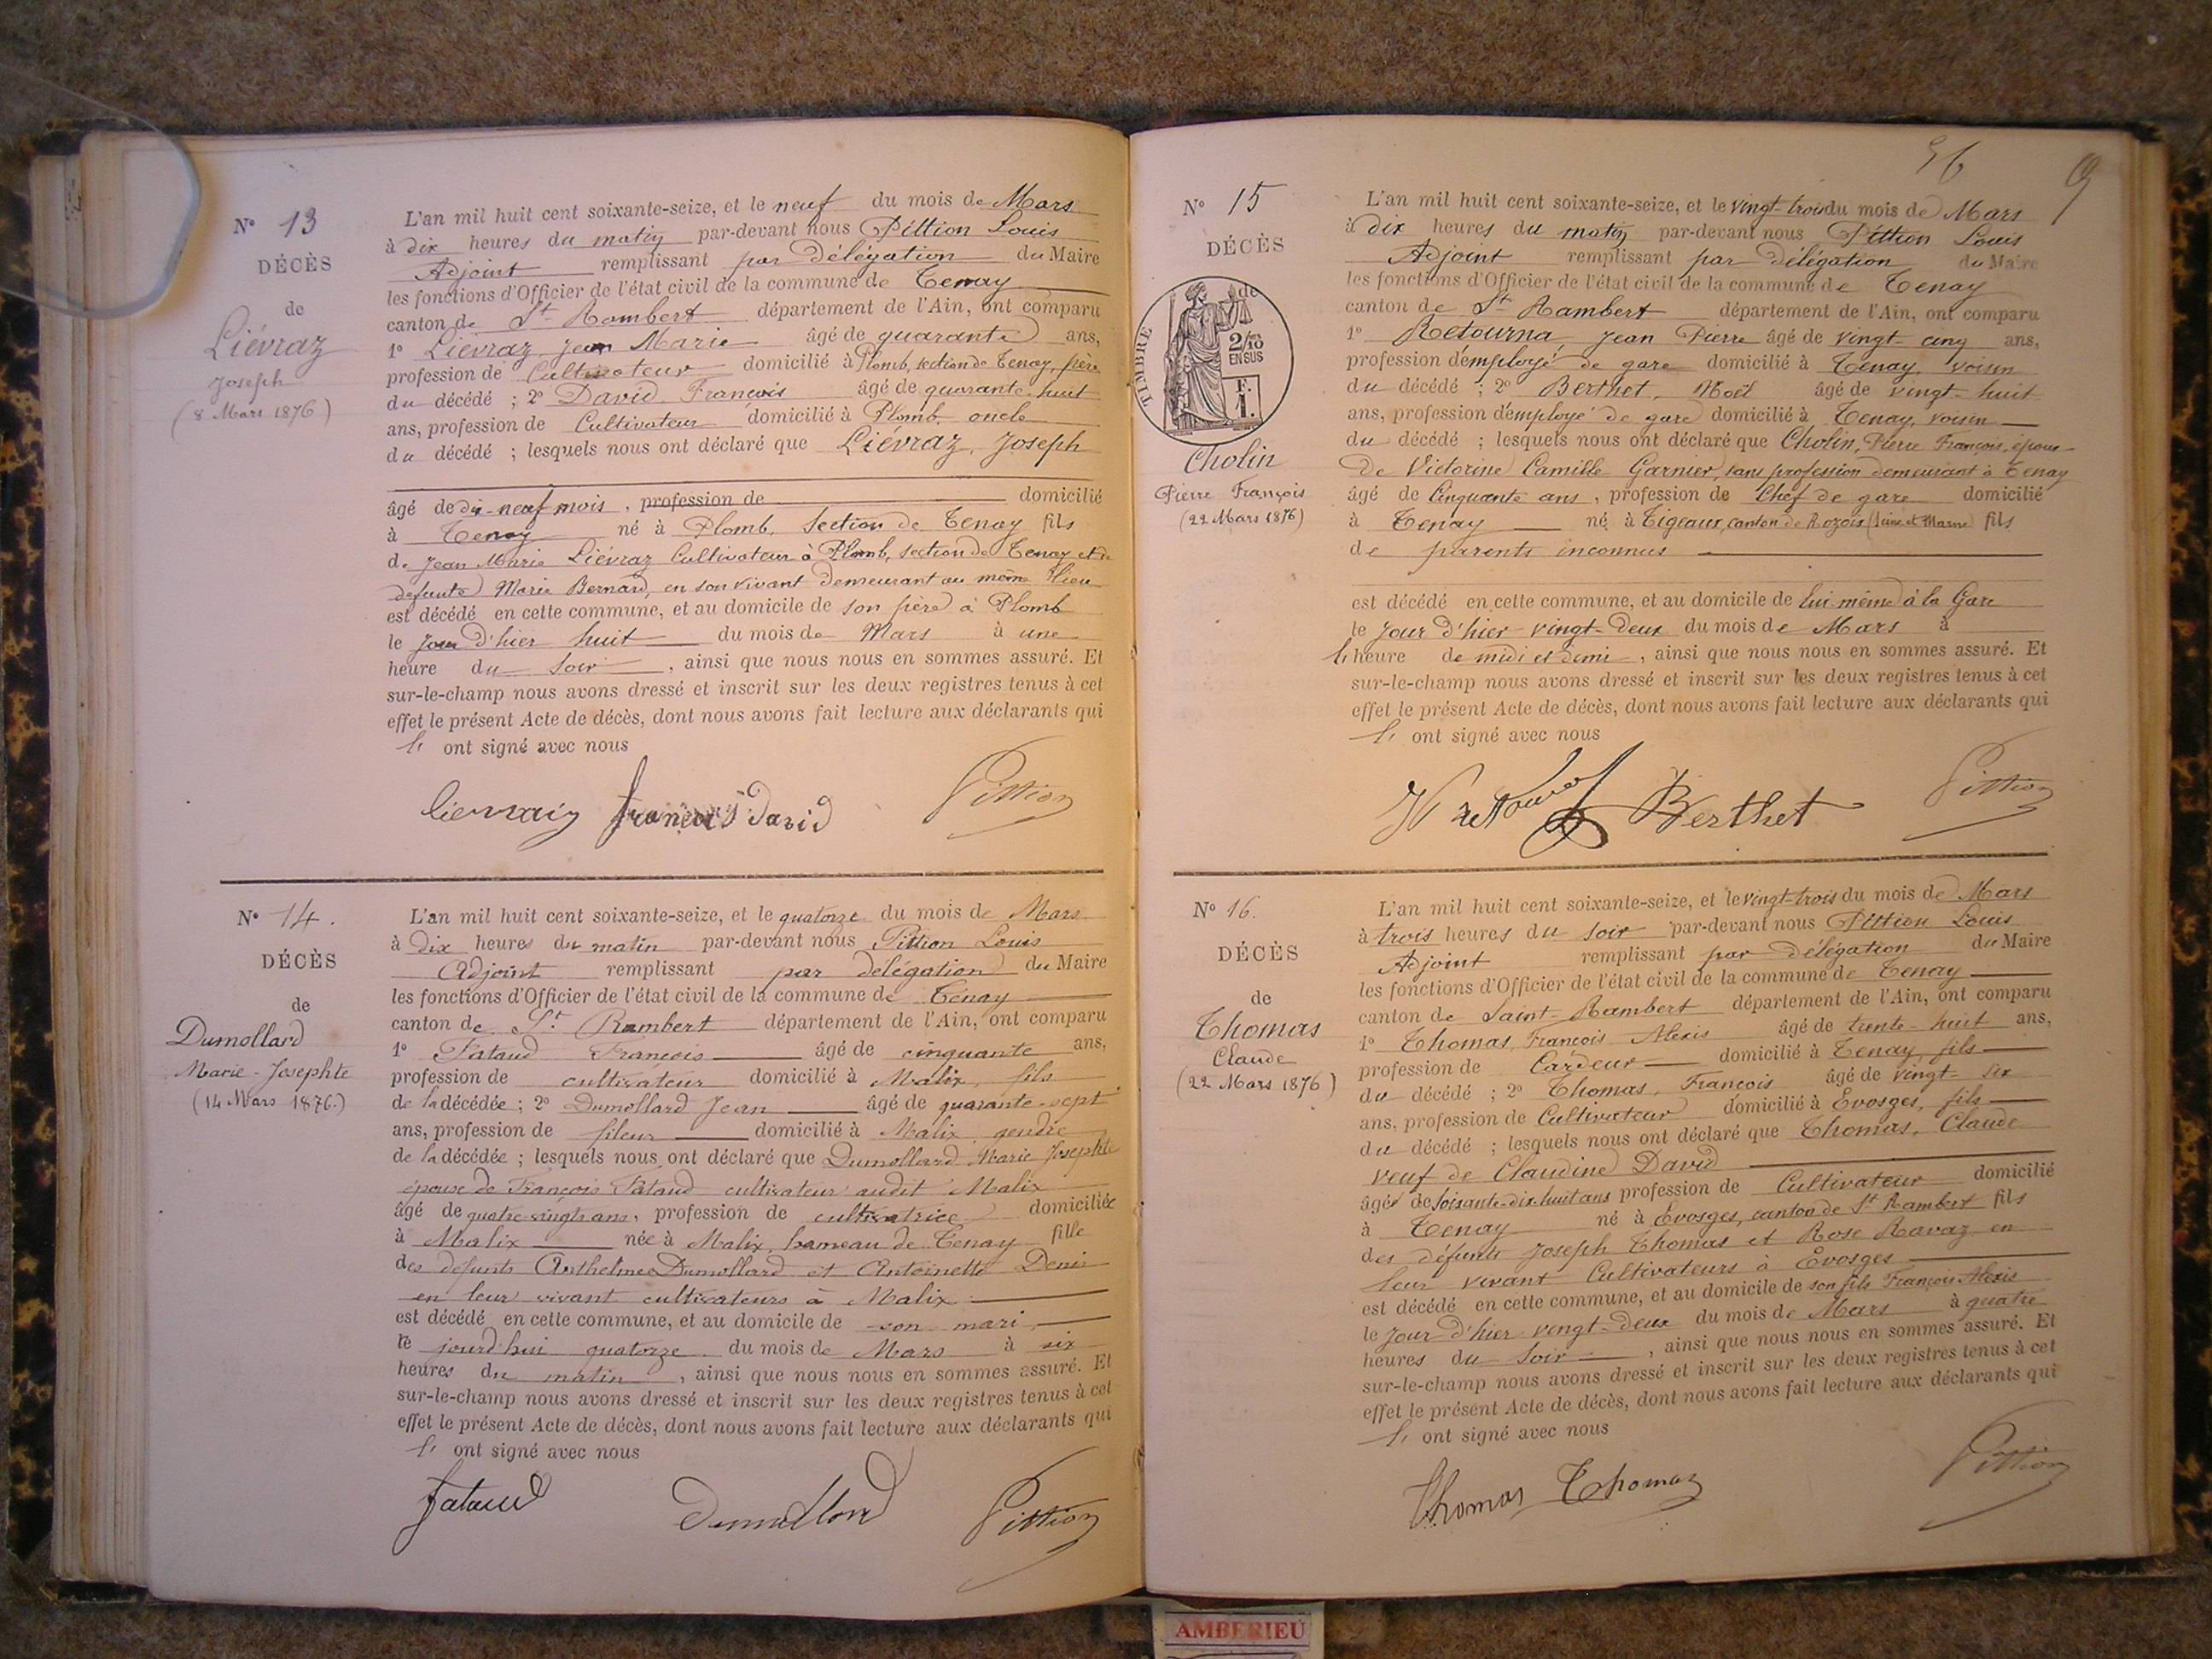 N° 13
DÉCÈS
de
Liévraz
Joseph
(8 Mars 1876)
L'an mil huit cent soixante-seize, et le neuf du mois de Mars
à dix heures du matin par-devant nous Pittion Louis
Adjoint remplissant par délégation du Maire
les fonctions d'Officier de l'état civil de la commune de Tenay
canton de St Rambert département de l'Ain, ont comparu
1° Liévraz, Jean Marie âgé de quarante ans,
profession de Cultivateur domicilié à Plomb, section de Tenay, père
du décédé ; 2° David François âgé de quarante-huit
ans, profession de Cultivateur domicilié à Plomb, oncle
du décédé ; lesquels nous ont déclaré que Liévraz, Joseph
âgé de dix-neuf mois, profession de domicilié
à Tenay né à Plomb, Section de Tenay fils
de Jean Marie Liévraz Cultivateur à Plomb, section de Tenay et de
défunte Marie Bernard, en son vivant demeurant au même lieu
est décédé en cette commune, et au domicile de son père à Plomb
le jour d'hier huit du mois de Mars à une
heure du soir, ainsi que nous nous en sommes assuré. Et
sur-le-champ nous avons dressé et inscrit sur les deux registres tenus à cet
effet le présent Acte de décès, dont nous avons fait lecture aux déclarants qui
ont signé avec nous
françois David Pittion
N° 14.
DÉCÈS
de
Dumollard
Marie-Josephte
(14 Mars 1876.)
L'an mil huit cent soixante-seize, et le quatorze du mois de Mars
à dix heures du matin par-devant nous Pittion Louis
Adjoint remplissant par délégation du Maire
les fonctions d'Officier de l'état civil de la commune de Tenay
canton de St. Rambert département de l'Ain, ont comparu
1° Fataud François âgé de cinquante ans,
profession de cultivateur domicilié à Malix, fils
de la décédée ; 2° Dumollard Jean âgé de quarante-sept
ans, profession de fileur domicilié à Malix, gendre
de la décédée ; lesquels nous ont déclaré que Dumollard Marie Josephte
épouse de François Fataud cultivateur audit Malix
âgé de quatre-vingts ans, profession de cultivatrice domiciliée
à Malix née à Malix, hameau de Tenay fille
des défunts Anthelme Dumollard et Antoinette Denis
en leur vivant cultivateurs à Malix
est décédé en cette commune, et au domicile de son mari
le jourd'hui quatorze du mois de Mars à six
heures du matin, ainsi que nous nous en sommes assuré. Et
sur-le-champ nous avons dressé et inscrit sur les deux registres tenus à cet
effet le présent Acte de décès, dont nous avons fait lecture aux déclarants qui
ont signé avec nous
fataud Dumollard Pittion
56
9
N° 15
DÉCÈS
de
TIMBRE
2/10
EN SUS
F.
1.
Cholin
Pierre François
(22 Mars 1876)
L'an mil huit cent soixante-seize, et le vingt-trois du mois de Mars
à dix heures du matin par-devant nous Pittion Louis
Adjoint remplissant par délégation du Maire
les fonctions d'Officier de l'état civil de la commune de Tenay
canton de St Rambert département de l'Ain, ont comparu
1° Retourna, Jean Pierre âgé de vingt-cinq ans,
profession d'employé de gare domicilié à Tenay, voisin
du décédé ; 2° Berthet, Noël âgé de vingt-huit
ans, profession d'employé de gare domicilié à Tenay, voisin
du décédé ; lesquels nous ont déclaré que Cholin, Pierre François, époux
de Victorine Camille Garnier, sans profession demeurant à Tenay
âgé de Cinquante ans, profession de Chef de gare domicilié
à Tenay né à Tigeaux, canton de Rozois (Seine et Marne) fils
de parents inconnus
est décédé en cette commune, et au domicile de lui même à la Gare
le jour d'hier vingt-deux du mois de Mars à
l' heure de midi et demi, ainsi que nous nous en sommes assuré. Et
sur-le-champ nous avons dressé et inscrit sur les deux registres tenus à cet
effet le présent Acte de décès, dont nous avons fait lecture aux déclarants qui
ont signé avec nous
Berthet Pittion
N° 16.
DÉCÈS
de
Thomas
Claude
(22 Mars 1876)
L'an mil huit cent soixante-seize, et le vingt-trois du mois de Mars
à trois heures du soir par-devant nous Pittion Louis
Adjoint remplissant par délégation du Maire
les fonctions d'Officier de l'état civil de la commune de Tenay
canton de Saint-Rambert département de l'Ain, ont comparu
1° Thomas, François Alexis âgé de trente-huit ans,
profession de Cardeur domicilié à Tenay, fils
du décédé ; 2° Thomas, François âgé de vingt-six
ans, profession de Cultivateur domicilié à Evosges, fils
du décédé ; lesquels nous ont déclaré que Thomas, Claude
veuf de Claudine David
âgé de soixante-dix-huit ans profession de Cultivateur domicilié
à Tenay né à Evosges, canton de St Rambert fils
des défunts Joseph Thomas et Rose Ravaz en
leur vivant Cultivateurs à Evosges
est décédé en cette commune, et au domicile de son fils François Alexis
le jour d'hier vingt-deux du mois de Mars à quatre
heures du soir, ainsi que nous nous en sommes assuré. Et
sur-le-champ nous avons dressé et inscrit sur les deux registres tenus à cet
effet le présent Acte de décès, dont nous avons fait lecture aux déclarants qui
ont signé avec nous
Thomas Thomas Pittion
AMBERIEU